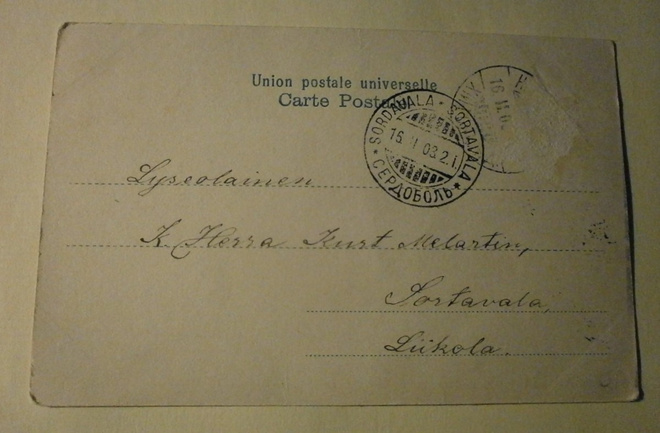 Union postale universelle
Carte Postale
SORDAVALA * SORTAVALA * СЕРДОБОЛЬ *
16. II 03. 2. I.
16. II. 03
Lyseolainen
K. Herra Kurt Melartin,
Sortavala,
Liikola.